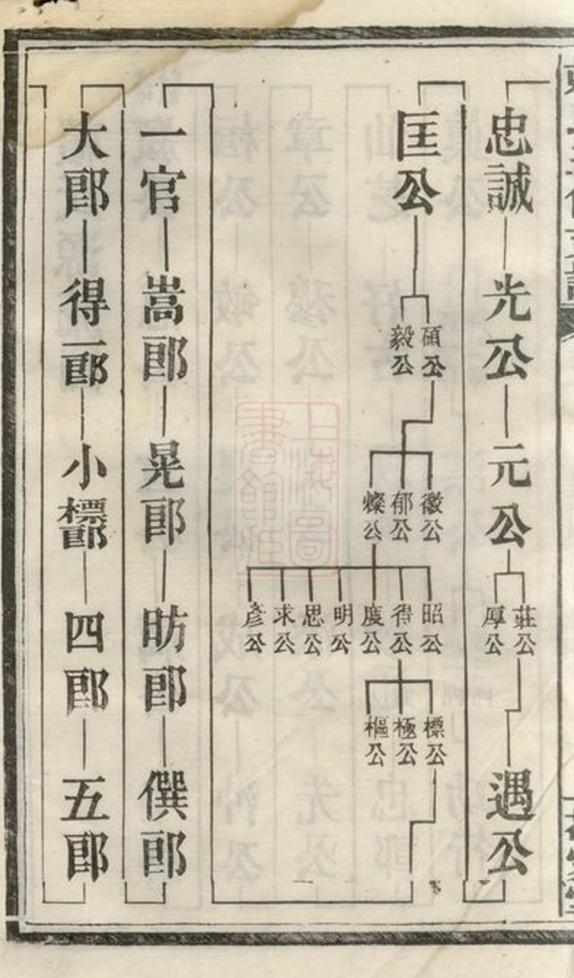 忠誠 光公 元公 莊公 厚公 遇公
匡公 碩公 毅公 徽公 郁公 燦公 昭公 得公 度公 明公 思公 求公 彥公 標公 極公 樞公
一官 嵩郎 晃郎 昉郎 僎郎
大郎 得一郎 小標郎 四郎 五郎
上海圖書館藏